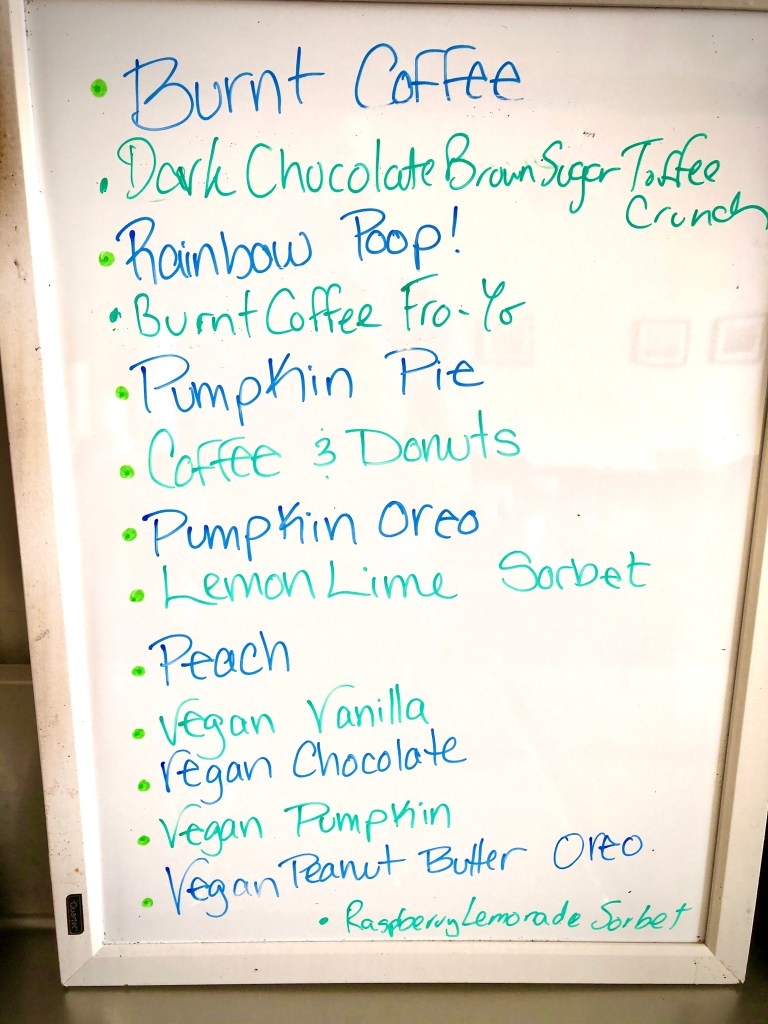 • Burnt Coffee
• Dark Chocolate Brown Sugar Toffee
Crunch
• Rainbow Poop!
• Burnt Coffee Fro-Yo
• Pumpkin Pie
• Coffee & Donuts
• Pumpkin Oreo
• Lemon Lime Sorbet
• Peach
• Vegan Vanilla
• Vegan Chocolate
• Vegan Pumpkin
• Vegan Peanut Butter Oreo
• Raspberry Lemonade Sorbet
Quartet